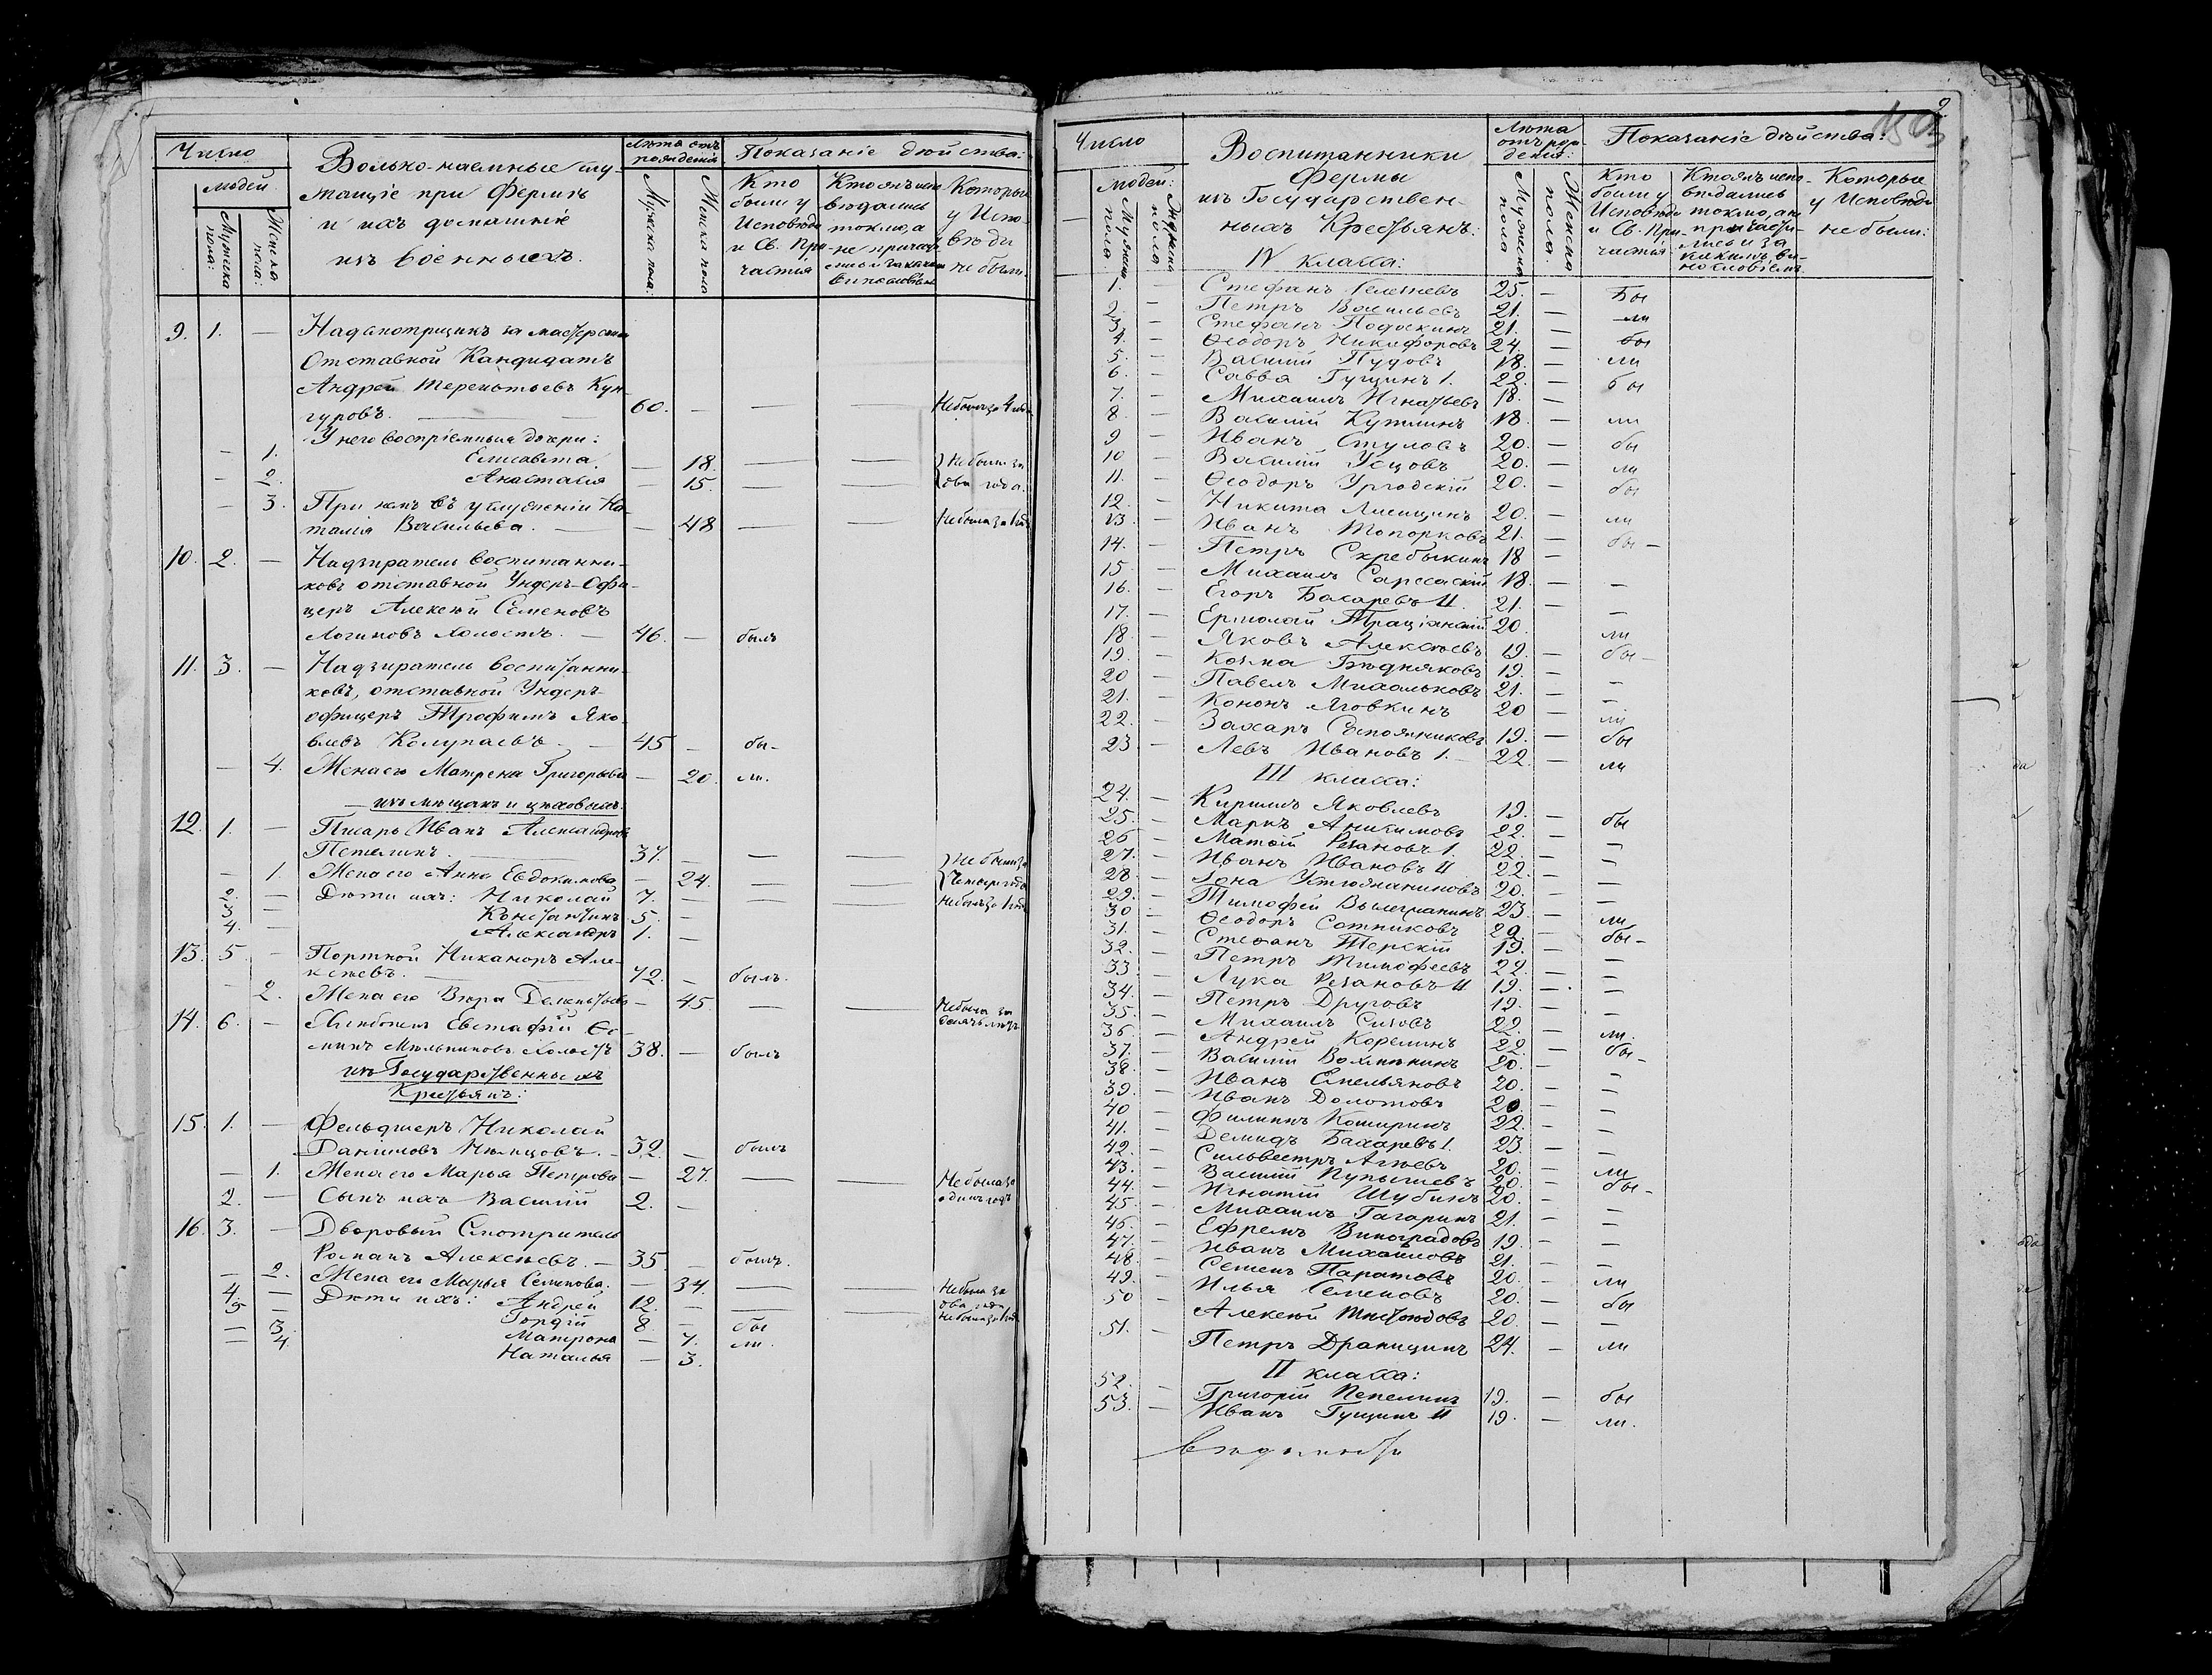 Число
людей
Мужеска пола:
Женска пола:
Вольно-наемные слу-
жащіе при Фермѣ
и ихъ домашніе
изъ военныхъ.
Лѣта отъ рожденія
Мужеска пола:
Женска пола
Показаніе дѣйства:
Кто были у Исповѣди и Св. При-частія
Кто изъ нихъ исповѣдались токмо, а не причащ
Которые у Испо-вѣди не были.
9. 1. — Надсмотрщикъ за мастерами
Отставной Кандидатъ
Андрей Терентьевъ Кун-
гуровъ. 60. — — — Не былъ за 4 года
У него воспріемныя дочери:
— 1. Елисавета. — 18. — — Не были за
— 2. Анастасія — 15. — — два года.
— 3. При немъ въ услуженіи На-
талія Васильева. — 48 — — Не была за 1 годъ
10. 2. — Надзиратель воспитанни-
ковъ отставной Ундеръ-Офи-
церъ Алексѣй Семеновъ
Логиновъ холостъ. — 46. — былъ
11. 3. — Надзиратель воспитанни-
ковъ, отставной Ундеръ-
офицеръ Трофимъ Яко-
влевъ Колупаевъ. — 45 — бы-
— 4. Жена его Матрена Григорьева — 20. ли.
изъ мѣщанъ и цеховыхъ.
12. 1. — Писарь Иванъ Александровъ
Петелинъ. 37. — — — Не были за
— 1. Жена его Анна Евдокимова — 24. — — Четыре года
2. — Дѣти ихъ: Николай 7. — — — Не былъ за 1 годъ
3. — Константинъ 5. —
4. — Александръ 1. —
13. 5. — Портной Никаноръ Але-
ксѣевъ. 42. — былъ.
— 2. Жена его Вѣра — 45. — — Не была за
14. 6. — Хлѣбопекъ Евстафій Ѳо-
минъ Мѣльниковъ холостъ 38. — былъ
изъ Государственныхъ
Крестьянъ:
15. 1. — Фельдшеръ Николай
Даниловъ Нѣмцовъ. — 32. — былъ
— 1. Жена его Марья Петрова — 27. — — Не была за
2. — Сынъ ихъ Василій 2. — одинъ годъ
16. 3. — Дворовый Смотритель
Романъ Алексѣевъ. — 35 — былъ.
— 2. Жена его Марья Семенова. — 34. — — Не была за
4. — Дѣти ихъ: Андрей 12. — — — два года
5 — Гордій 8. — бы
— 3. Матрона — 7. ли.
— 4. Наталья — 3.
Число
людей:
Мужеска пола
Женска пола
Воспитанники
Фермы
изъ Государствен-
ныхъ Крестьянъ:
IV класса:
Лѣта отъ рож-денія:
Мужеска пола
Женска пола
Показаніе дѣйства:
Кто были у Исповѣди и Св. При-частія
Кто изъ нихъ испо-вѣдались токмо, а не причасти-лись и за какимъ ви-нословіемъ
Которые у Исповѣди не были:
1. — Стефанъ 25. — Бы
2. — Петръ Васильевъ 21. — ли
3. — Стефанъ Подоскинъ 21. —
4. — Ѳеодоръ Никифоровъ 24. — бы
5. — Василій Пудовъ 18. — ли
6. — Савва Гущинъ 1. 22. — бы
7. — Михаилъ Игнатьевъ 18. —
8. — Василій Кутинъ 18. — ли
9 — Иванъ Стуловъ 20. — бы
10 — Василій Усцовъ 20. — ли
11. — Ѳеодоръ Ургодскій 20. — бы
12. — Никита Лисицинъ 20. — ли
13. — Иванъ Топорковъ 21. — бы —
14. — Петръ Скребыкинъ 18 —
15. — Михаилъ 18. — —
16. — Егоръ Бахаревъ II. 21. — —
17. — Ермолай 20. ли
18. — Яковъ Алексѣевъ 19. — бы —
19. — Козма Бѣдняковъ 19. —
20 — Павелъ Михальковъ 21. — —
21. — Кононъ Ловкинъ 20 — —
22. — Захаръ 19. — ли бы
23. — Левъ Ивановъ 1. — 22. — ли
III класса:
24. — Кириллъ Яковлевъ 19. — бы
25. — Маркъ Анисимовъ 22. —
26 — Матѳій Резановъ 1. 22. — —
27. — Иванъ Ивановъ II 22. — —
28. — Іона Устюжаниновъ 20. — —
29. — Тимофей Вылегжанинъ 23. — —
30 — Ѳеодоръ Сотниковъ 20. — ли бы —
31. — Стефанъ Терскій 19. —
32. — Петръ Тимофеевъ 22. — —
33 — Лука Резановъ II 19. — —
34. — Петръ Друговъ 19. — —
35. — Михаилъ Сизовъ 22. — ли.
36. — Андрей Корелинъ 22 — бы —
37. — Василій Вохминъ 20. —
38. — Иванъ Емельяновъ 20. — —
39. — Иванъ Долотовъ 20. — —
40 — Филиппъ Коширинъ 22. — —
41. — Демидъ Бахаревъ 1. 23. — —
42. — Сильвестръ Агѣевъ 20. — ли
43. — Василій Пупышевъ 20. — бы —
44. — Игнатій Шубинъ 20. —
45. — Михаилъ Гагаринъ 21. — —
46. — Ефремъ Виноградовъ 19. — —
47. — Иванъ Михайловъ 21. — —
48. — Семенъ Паратовъ 20. — ли
49. — Илья Семеновъ 20. — бы
50 — Алексѣй 20. — —
51. — Петръ Драницинъ 24. — ли
II класса:
52. — Григорій Пепелинъ 19. — бы
53. — Иванъ Гущинъ II 19. — ли.